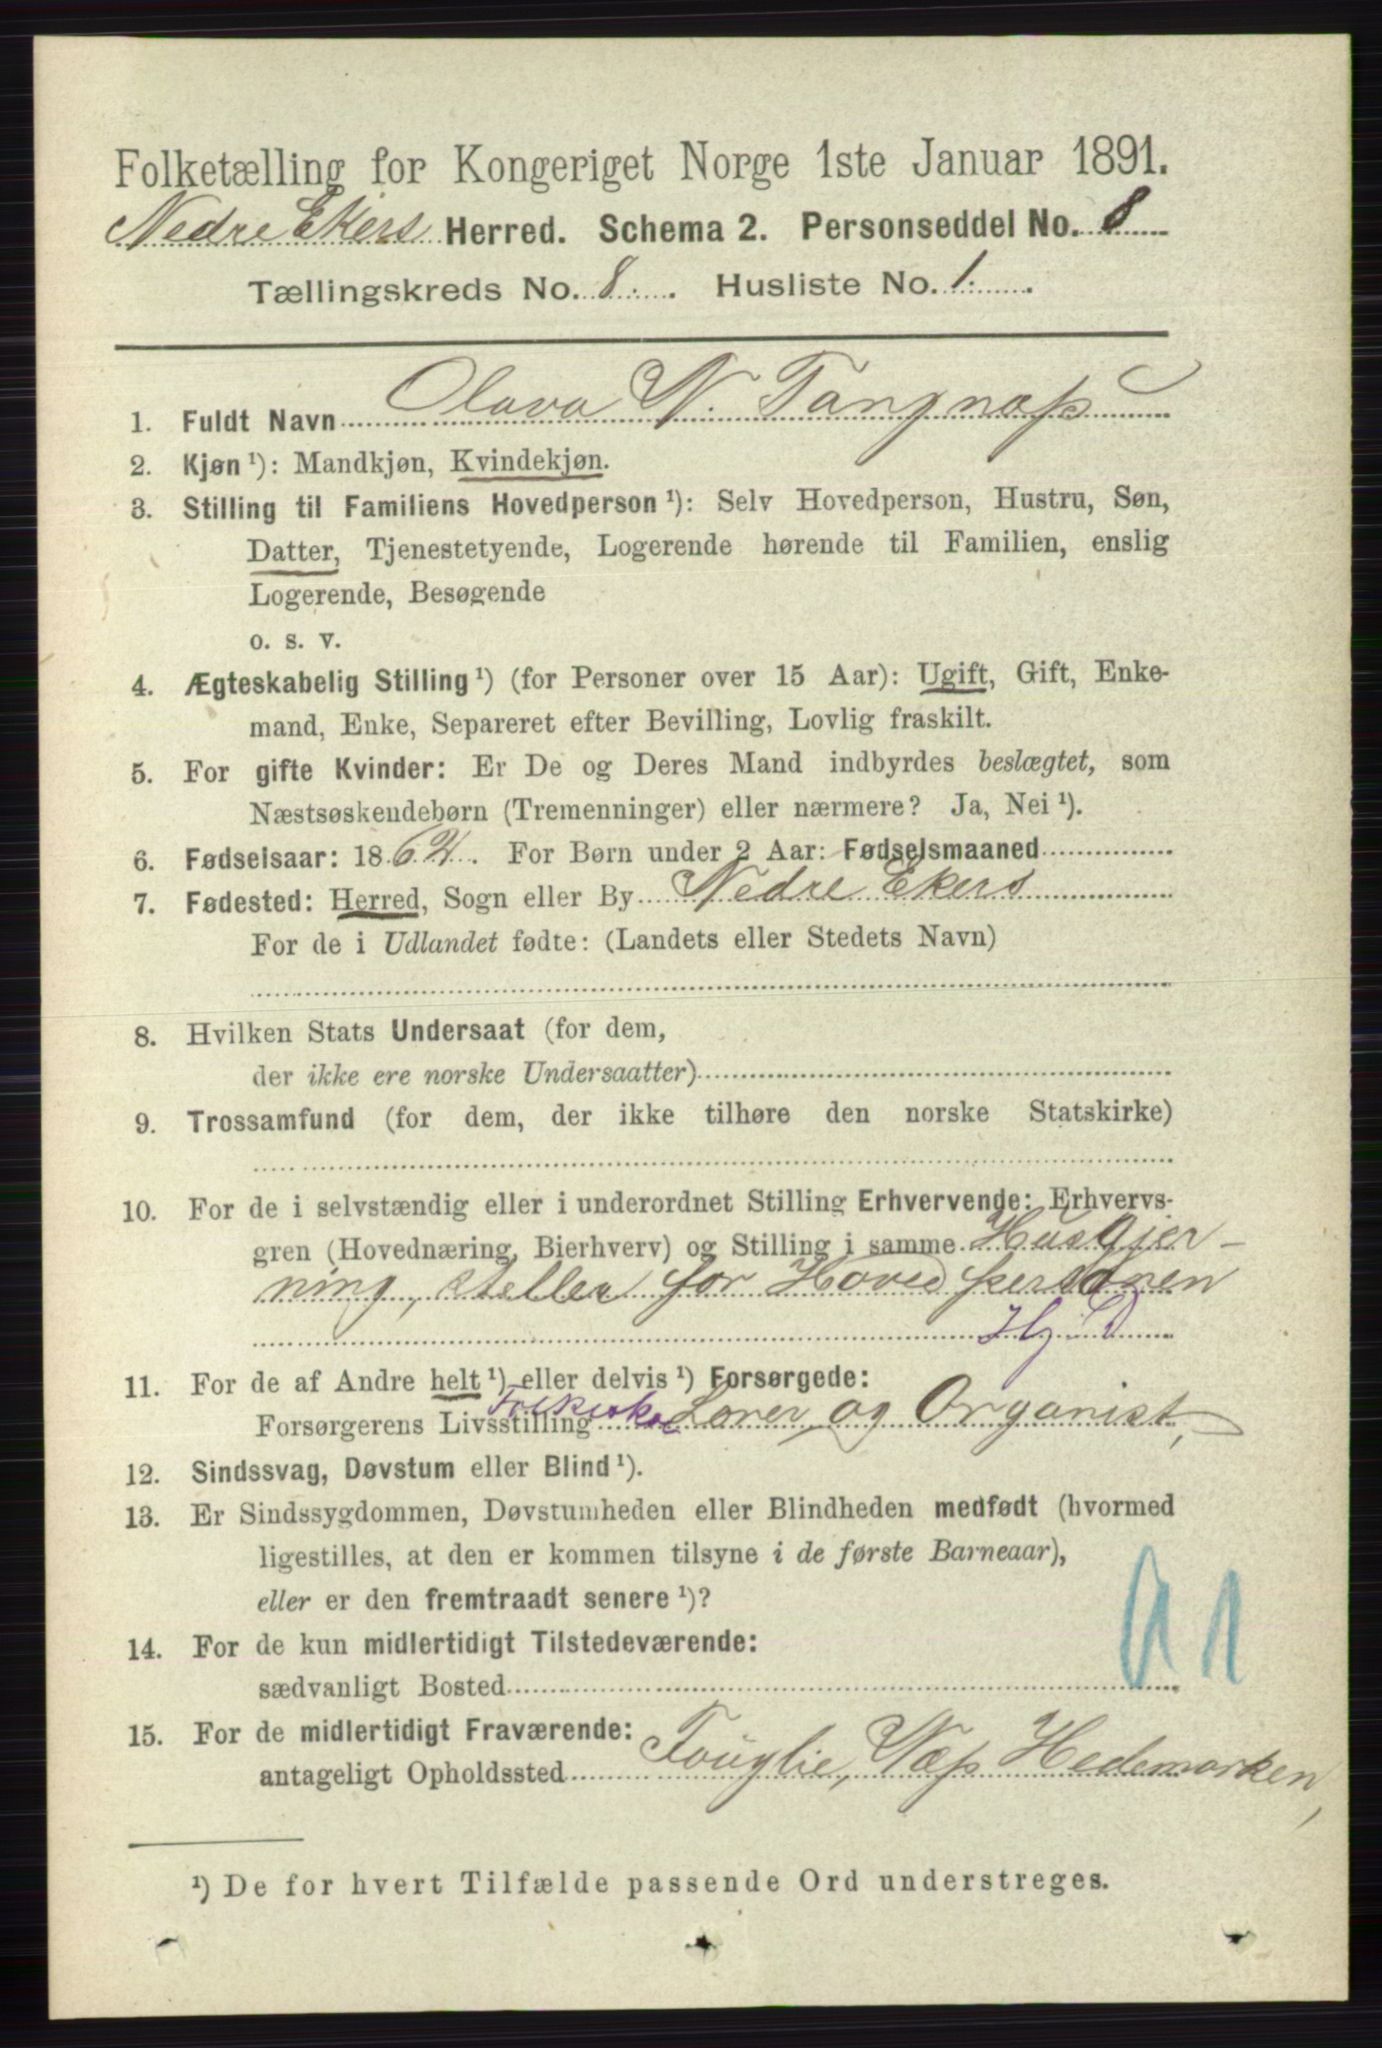 Folketælling for Kongeriget Norge 1ste Januar 1891.
Nedre Ekers Herred. Schema 2. Personseddel No. 8
Tællingskreds No. 8. Husliste No. 1.
1. Fuldt Navn Olava N. Tangnæss
2. Kjøn ¹): Mandkjøn, Kvindekjøn.
3. Stilling til Familiens Hovedperson ¹): Selv Hovedperson, Hustru, Søn,
Datter, Tjenestetyende, Logerende hørende til Familien, enslig
Logerende, Besøgende
o. s. v.
4. Ægteskabelig Stilling ¹) (for Personer over 15 Aar): Ugift, Gift, Enke-
mand, Enke, Separeret efter Bevilling, Lovlig fraskilt.
5. For gifte Kvinder: Er De og Deres Mand indbyrdes beslægtet, som
Næstsøskendebørn (Tremenninger) eller nærmere? Ja, Nei ¹).
6. Fødselsaar: 1864. For Børn under 2 Aar: Fødselsmaaned
7. Fødested: Herred, Sogn eller By Nedre Ekers
For de i Udlandet fødte: (Landets eller Stedets Navn)
8. Hvilken Stats Undersaat (for dem,
der ikke ere norske Undersaatter)
9. Trossamfund (for dem, der ikke tilhøre den norske Statskirke)
10. For de i selvstændig eller i underordnet Stilling Erhvervende: Erhvervs-
gren (Hovednæring, Bierhverv) og Stilling i samme Husgjer-
ning, steller for Hovedpersonen
Hj. D
11. For de af Andre helt ¹) eller delvis ¹) Forsørgede:
Forsørgerens Livsstilling Lærer og Organist,
12. Sindssvag, Døvstum eller Blind ¹).
13. Er Sindssygdommen, Døvstumheden eller Blindheden medfødt (hvormed
ligestilles, at den er kommen tilsyne i de første Barneaar),
eller er den fremtraadt senere ¹)?
14. For de kun midlertidigt Tilstedeværende:
sædvanligt Bosted
15. For de midlertidigt Fraværende:
antageligt Opholdssted Fouglie, Næss Hedemarken,
¹) De for hvert Tilfælde passende Ord understreges.